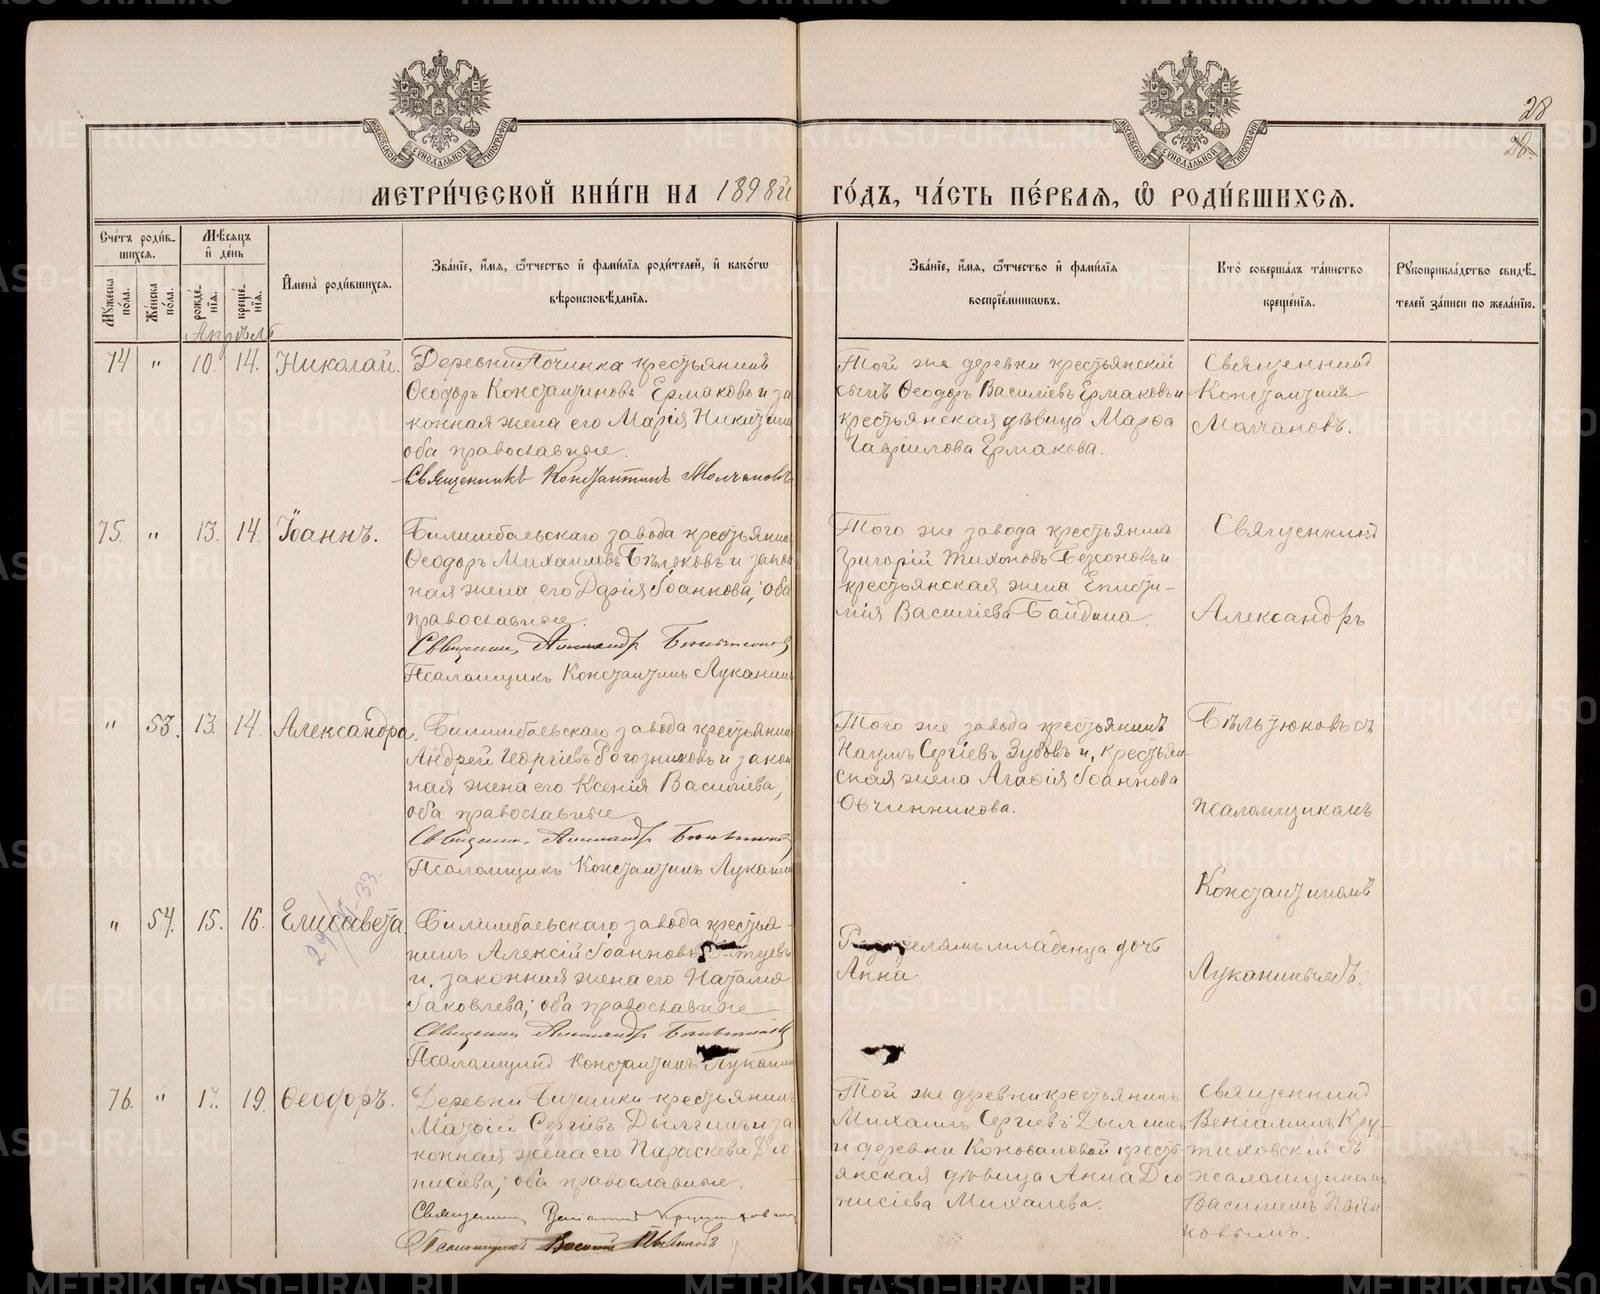 28
МЕТРИ́ЧЕСКОЙ КНИ́ГИ НА 1898й ГО́ДЪ, ЧА́СТЬ ПЕ́РВАѦ, Ѿ РОДИ́ВШИХСѦ.
Сче́тъ роди́вшихсѧ.
Мѣ́сѧцъ и де́нь
Имена̀ роди́вшихсѧ.
Зва́нїе, и́мѧ, ѻ҆́тчество и фами́лїѧ роди́телей, и како́гѡ
вѣроисповѣ́данїѧ.
Зва́нїе, и́мѧ, ѻ҆́тчество и фами́лїѧ
воспрїе́мникѡвъ.
Кто̀ соверша́лъ та́инство
креще́нїѧ.
Рꙋкоприкла́дство свидѣ́-
телей за́писи по жела́нїю.
Мꙋ́жеска по́ла.
Же́нска по́ла.
рожде́нїѧ.
креще́нїѧ.
Апрѣль
74 " 10. 14. Николай.
Деревни Починка крестьянинъ
Ѳеодоръ Константиновъ Ермаковъ и за
конная жена его Марія Никитина
оба православные.
Священникъ Константинъ Молчановъ
Той же деревни крестьянскій
сынъ Ѳеодоръ Василіевъ Ермаковъ и
крестьянская дѣвица Марѳа
Гавріилова Ермакова.
Священник
Константинъ
Молчановъ.
75. " 13. 14. Іоаннъ.
Билимбаевскаго завода крестьянинъ
Ѳеодоръ Михаиловъ и закон
ная жена его Дарія Іоаннова; оба
православные.
Священник Александр
Псаломщикъ Константинъ Луканинъ
Того же завода крестьянинъ
Григорій Тихоновъ и
крестьянская жена Еписти-
мія Василіева Байдина.
Священник
Александръ
" 53. 13. 14. Александра.
Билимбаевскаго завода крестьянинъ
Андрей Георгіевъ Рогозниковъ и закон
ная жена его Ксенія Василіева;
оба православные
Священник Александр
Псаломщикъ Константинъ Луканин
Того же завода крестьянинъ
Наумъ Сергіевъ Зубовъ и, крестьян-
ская жена Агафія Іоаннова
Овчинникова.
Бѣльтюковъ съ
псаломщикомъ
Константиномъ
" 54. 15. 16. Елисавета.
Билимбаевскаго завода крестья-
нинъ Алексій Іоанновъ
и, законная жена его Наталія
Іаковлева; оба православные
Священник Александр
Псаломщик Константинъ Луканин
младенца дочь
Анна
Луканинымъ.
76. " 17. 19. Ѳеодоръ.
Деревни Битимки крестьянинъ
Матѳій Сергіевъ и за
конная жена его Параскева Діо
нисіева; оба православные.
Священник
Псаломщикъ Василій
Той же деревни крестьянинъ
Михаилъ Сергіевъ
и деревни Коноваловой кресть
янская дѣвица Анна Діо
нисіева Михалева.
Священник
Веніаминъ Кру-
тиховскій съ
псаломщикомъ
Василіемъ
METRIKI.GASO-URAL.RU